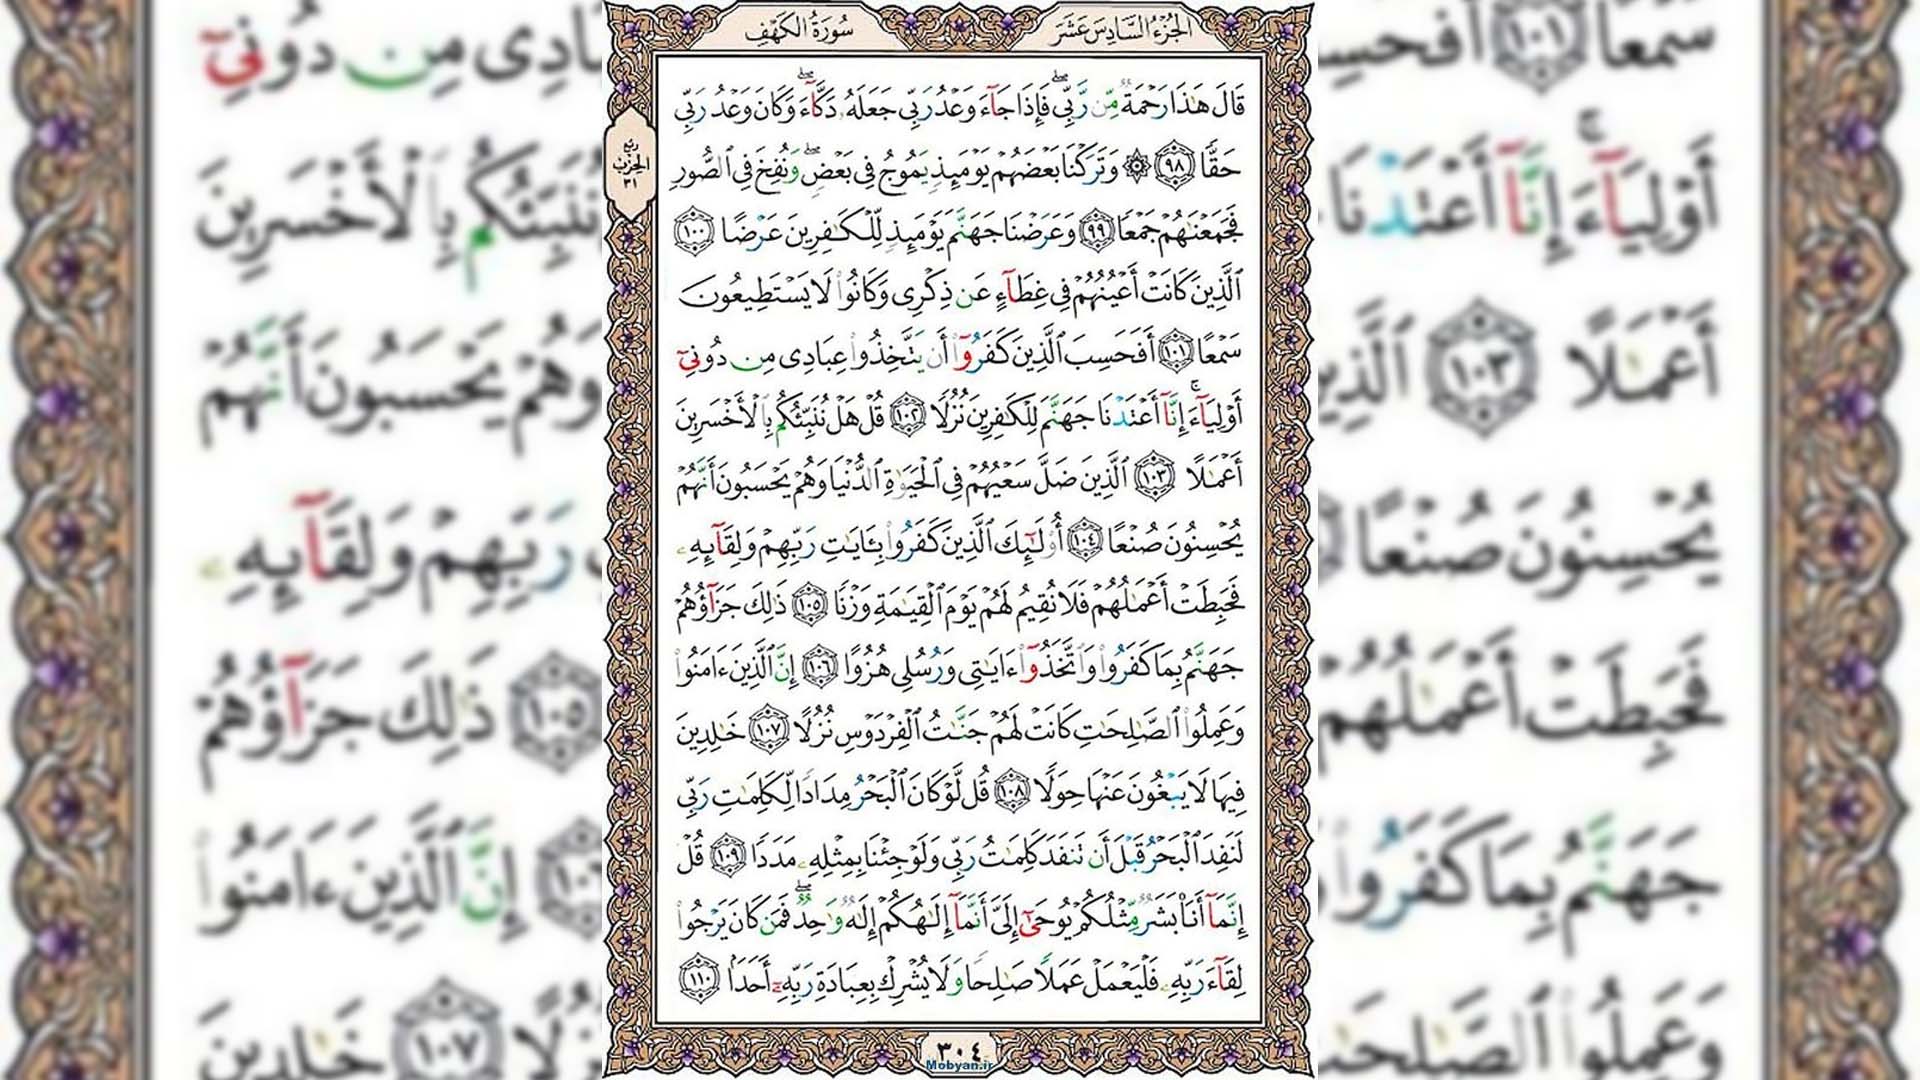 الجُزْءُ السَّادِسَ عَشَرَ
سُورَةُ الكَهْفِ
قَالَ هَٰذَا رَحْمَةٌ مِّن رَّبِّي ۖ فَإِذَا جَآءَ وَعْدُ رَبِّي جَعَلَهُۥ دَكَّآءَ ۖ وَكَانَ وَعْدُ رَبِّي
حَقًّا ٩٨ ۞ وَتَرَكْنَا بَعْضَهُمْ يَوْمَئِذٍ يَمُوجُ فِي بَعْضٍ ۖ وَنُفِخَ فِي ٱلصُّورِ
فَجَمَعْنَٰهُمْ جَمْعًا ٩٩ وَعَرَضْنَا جَهَنَّمَ يَوْمَئِذٍ لِّلْكَٰفِرِينَ عَرْضًا ١٠٠
ٱلَّذِينَ كَانَتْ أَعْيُنُهُمْ فِي غِطَآءٍ عَن ذِكْرِي وَكَانُوا۟ لَا يَسْتَطِيعُونَ
سَمْعًا ١٠١ أَفَحَسِبَ ٱلَّذِينَ كَفَرُوٓا۟ أَن يَتَّخِذُوا۟ عِبَادِي مِن دُونِيٓ
أَوْلِيَآءَ ۚ إِنَّآ أَعْتَدْنَا جَهَنَّمَ لِلْكَٰفِرِينَ نُزُلًا ١٠٢ قُلْ هَلْ نُنَبِّئُكُم بِٱلْأَخْسَرِينَ
أَعْمَٰلًا ١٠٣ ٱلَّذِينَ ضَلَّ سَعْيُهُمْ فِي ٱلْحَيَوٰةِ ٱلدُّنْيَا وَهُمْ يَحْسَبُونَ أَنَّهُمْ
يُحْسِنُونَ صُنْعًا ١٠٤ أُو۟لَٰٓئِكَ ٱلَّذِينَ كَفَرُوا۟ بِـَٔايَٰتِ رَبِّهِمْ وَلِقَآئِهِۦ
فَحَبِطَتْ أَعْمَٰلُهُمْ فَلَا نُقِيمُ لَهُمْ يَوْمَ ٱلْقِيَٰمَةِ وَزْنًا ١٠٥ ذَٰلِكَ جَزَآؤُهُمْ
جَهَنَّمُ بِمَا كَفَرُوا۟ وَٱتَّخَذُوٓا۟ ءَايَٰتِي وَرُسُلِي هُزُوًا ١٠٦ إِنَّ ٱلَّذِينَ ءَامَنُوا۟
وَعَمِلُوا۟ ٱلصَّٰلِحَٰتِ كَانَتْ لَهُمْ جَنَّٰتُ ٱلْفِرْدَوْسِ نُزُلًا ١٠٧ خَٰلِدِينَ
فِيهَا لَا يَبْغُونَ عَنْهَا حِوَلًا ١٠٨ قُل لَّوْ كَانَ ٱلْبَحْرُ مِدَادًا لِّكَلِمَٰتِ رَبِّي
لَنَفِدَ ٱلْبَحْرُ قَبْلَ أَن تَنفَدَ كَلِمَٰتُ رَبِّي وَلَوْ جِئْنَا بِمِثْلِهِۦ مَدَدًا ١٠٩ قُلْ
إِنَّمَآ أَنَا۠ بَشَرٌ مِّثْلُكُمْ يُوحَىٰٓ إِلَيَّ أَنَّمَآ إِلَٰهُكُمْ إِلَٰهٌ وَٰحِدٌ ۖ فَمَن كَانَ يَرْجُوا۟
لِقَآءَ رَبِّهِۦ فَلْيَعْمَلْ عَمَلًا صَٰلِحًا وَلَا يُشْرِكْ بِعِبَادَةِ رَبِّهِۦٓ أَحَدًۢا ١١٠
ربع
الحزب
٣١
٣٠٤
Mobyan.ir